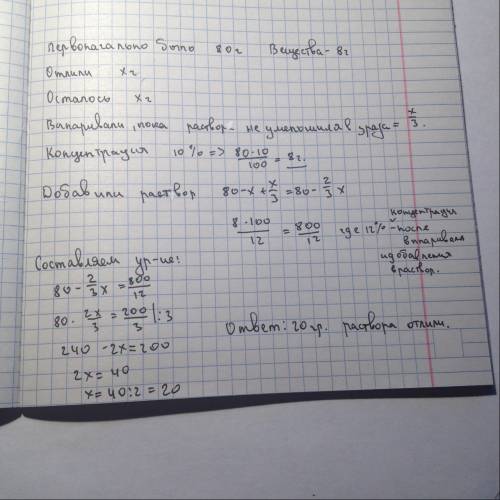 Первоначально было 80г Вещества - 8г
Отлили xг
Осталось xг
Выпаривали, пока раствор - не уменошила в 3 раза = x/3.
Концентрация 10% => 80·10/100 = 8г.
Добавили раствор 80-x+x/3=80-2/3x
8·100/12 = 800/12 где 12% - концентрация после выпаривания и добавления в раствор.
Составляем ур-ие:
80-2/3x=800/12
80·2x/3=200/3 |:3
240-2x=200
2x=40
x=40:2=20
Ответ: 20гр. раствора отлили.